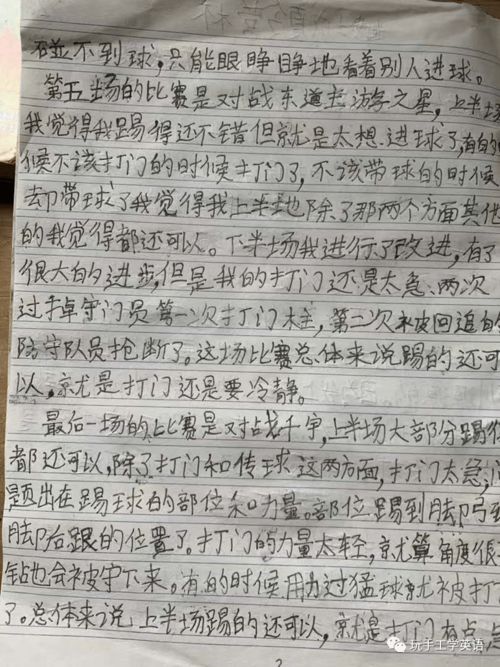 碰不到球，只能眼睁睁地看着别人进球。
第五场的比赛是对战东道主游学之星，上半场
我觉得我踢得还不错但就是太想进球了，有的时
候不该打门的时候打门了，不该带球的时候
却带球了我觉得我上半场除了那两个方面其他
的我觉得都还可以。下半场我进行了改进，有了
很大的进步，但是我的打门还是太急、两次
过掉守门员第一次打门柱，第二次被回追的
防守队员抢断了。这场比赛总体来说踢的还可
以，就是打门还是要冷静。
最后一场的比赛是对战千宇，上半场大部分踢
都还可以，除了打门和传球这两方面，打门太急，
题出在踢球的部位和力量。部位踢到脚弓
脚后跟的位置了。打门的力量太轻，就算角度很
钻也会被守下来。有的时候用力过猛球就被打
了。总体来说上半场踢的还可以，就是打门有点
玩手工学英语